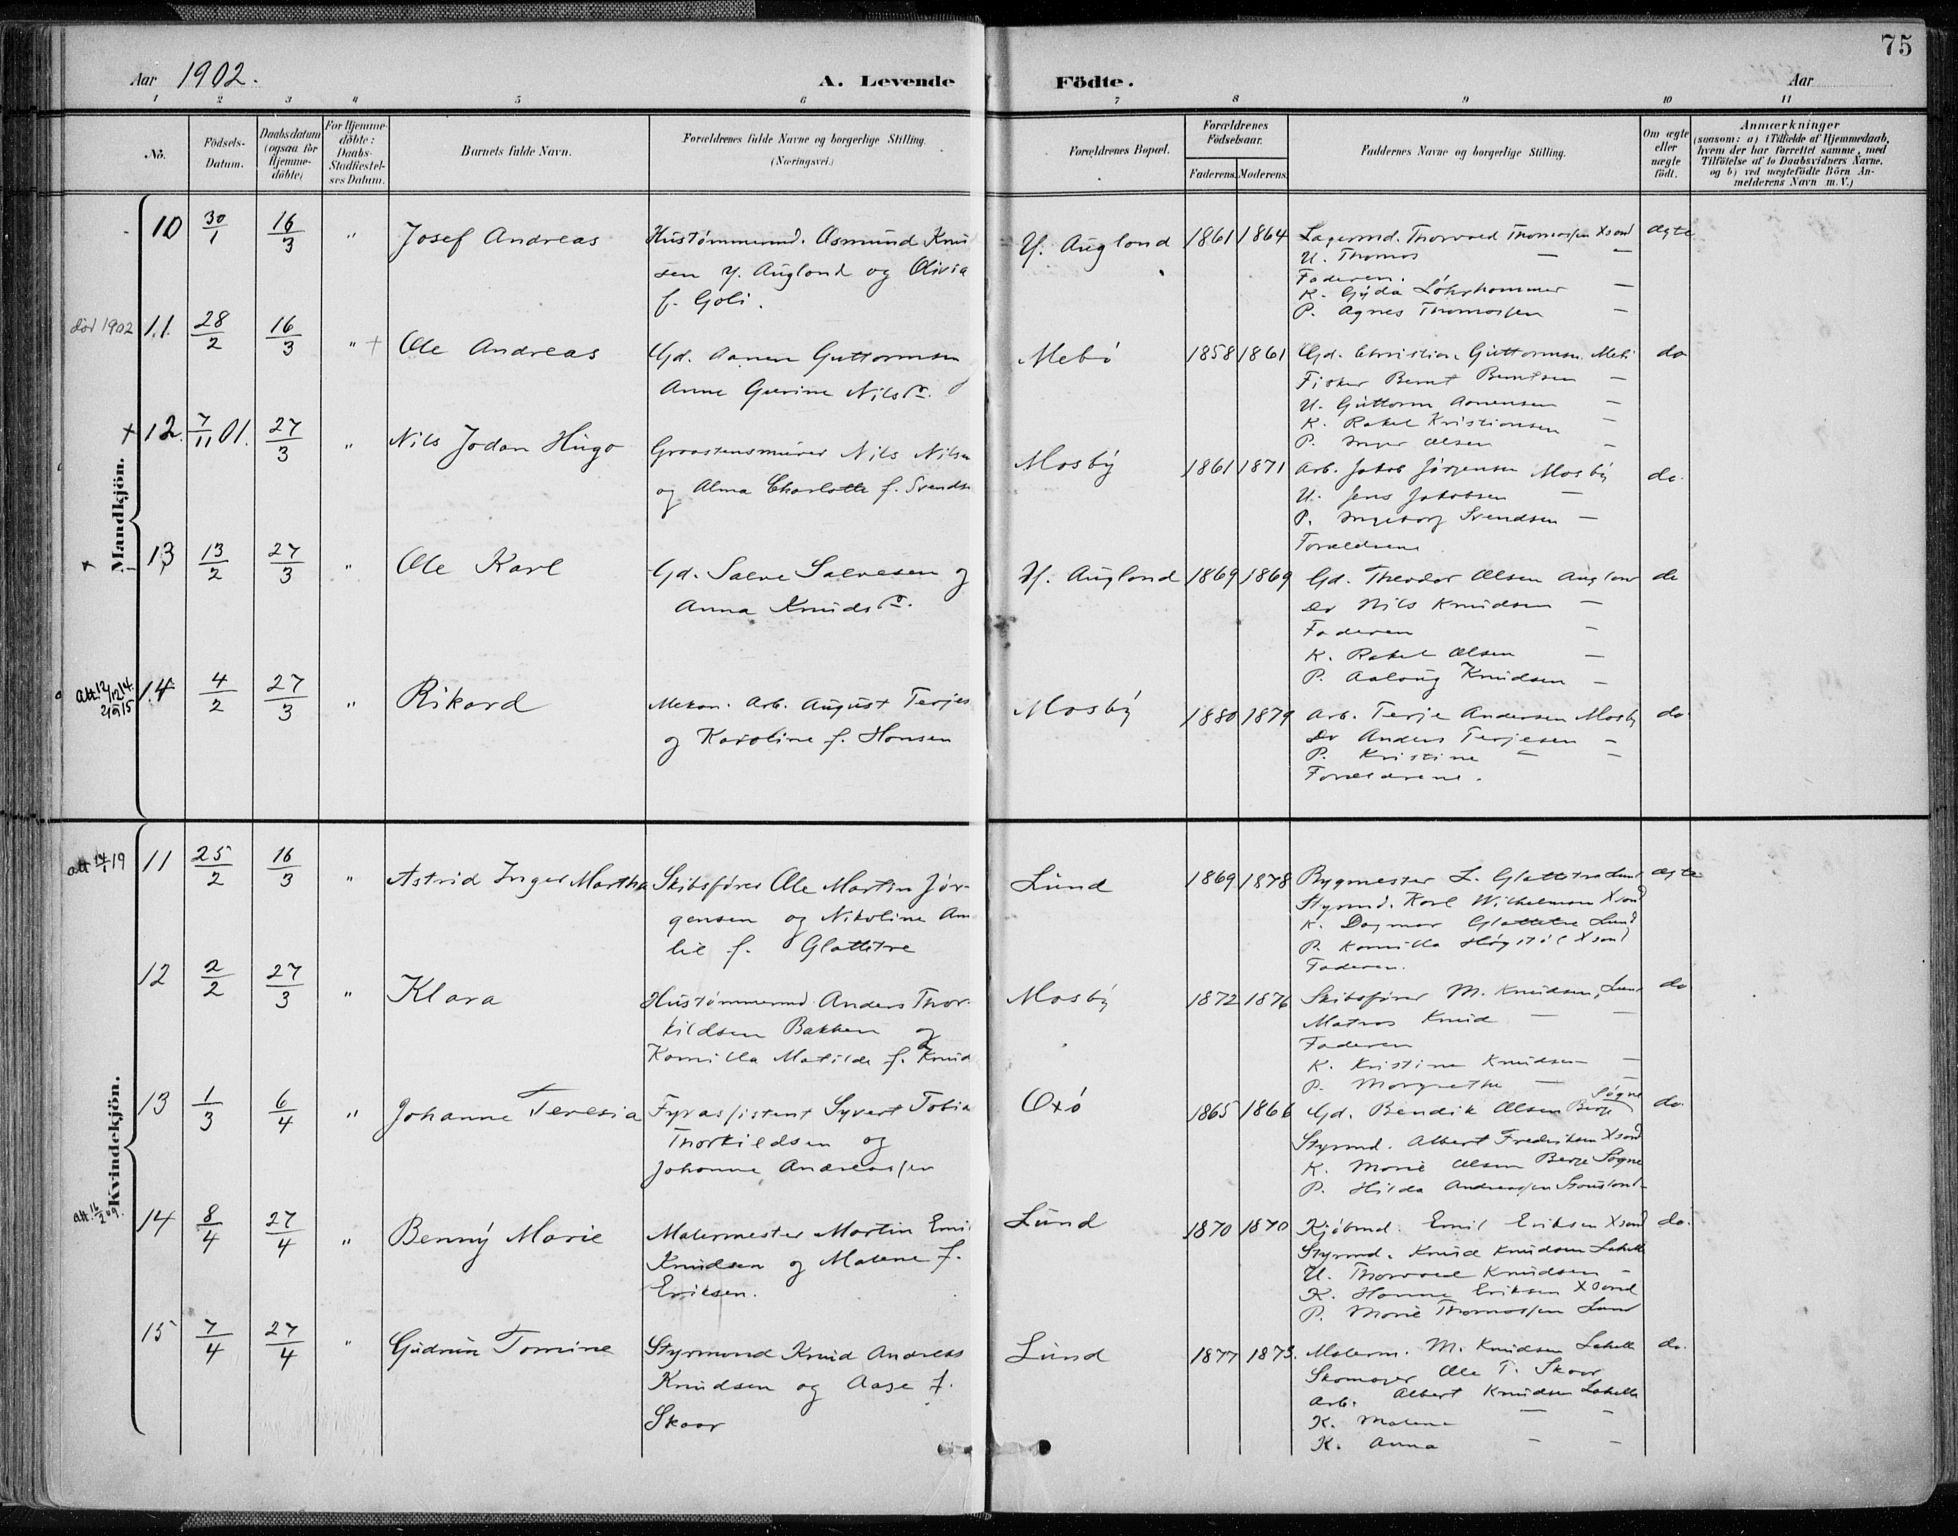 75
Aar 1902.
A. Levende Födte.
Aar
1 2 3 4 5 6 7 8 9 10 11
No.
Födsels-Datum.
Daabsdatum (ogsaa for Hjemme-döbte)
For Hjemme-döbte: Daabs-Stadfæstelses Datum.
Barnets fulde Navn.
Forældrenes fulde Navne og borgerlige Stilling. (Næringsvei.)
Forældrenes Bopæl.
Forældrenes Födselsaar.
Faderens. Moderens.
Faddernes Navne og borgerlige Stilling.
Om ægte eller uægte födt.
Anmærkninger
(saasom: a) i Tilfælde af Hjemmedaab, hvem der har forrettet samme, med Tilföielse af to Daabsvidners Navne, og b) ved uægtefödte Börn Anmelderens Navn m. V.)
Mandkjön.
10 30/1 16/3 " Josef Andreas
Hustømmermd. Asmund Knu
sen Y. Augland og Olivia
f. Goli.
Y. Augland 1861 1864
Lagermd. Thorvald Thomassen Xsand
U. Thomas — —
Faderen.
K. Gyda —
P. Agnes Thomassen —
ægte
død 1902 11. 28/2 16/3 " + Ole Andreas
Gd. Aanen Guttormsen
Anne Gurine Nilsdr.
Mebø 1858 1861
Gd. Christian Guttormsen Mebø
Fisker Bernt Berntsen —
U. Guttorm Aanensen —
K. Rakel Kristiansen —
P. Inger Olsen —
do
+ 12. 7/11 01. 27/3 " Nils Jodan Hugo
Graastensmurer Nils Nilsen
og Alma Charlotte f. Svends
Mosby 1861 1871
Arb. Jakob Jørgensen Mosby
U. Jens Jakobsen —
P. Ingeborg Svendsen —
Forældrene
do.
+ 13 13/2 27/3 " Ole Karl
Gd. Salve Salvesen og
Anna Knudsdr.
Y. Augland 1869 1869
Gd. Theodor Olsen Augland
Do Nils Knudsen —
Faderen —
K. Rakel Olsen —
P. Aalaug Knudsen —
do
att 12/12 14. 14 4/2 27/3 " Rikard
Mekan. Arb. August Terjes
og Karoline f. Hansen
Mosby 1880 1879
Arb. Terje Andersen Mosby
Do Anders Terjesen —
P. Kristine — —
Forældrene.
do.
Kvindekjön.
11 25/2 16/3 " Astrid Inger Martha
Skibsfører Ole Martin Jør-
gensen og Nikoline Am
lie f. Glattetre
Lund 1869 1878
Bygmester L. Glattetre Lund
Styrmd. Karl Wilhelmsen Xsand
K. Dagmar Glattetre Lund
P. Kamilla Høgstøl Xsand
Faderen.
ægte
12 2/2 27/3 " Klara
Hustømmermd. Anders Thor-
kildsen Bakken og
Kamilla Matilde f. Knud
Mosby 1872 1876
Skibsfører M. Knudsen, Lund
Matros Knud — —
Faderen
K. Kristine Knudsen —
P. Margrethe — —
do
13 1/3 6/4 " Johanne Teresia
Fyrassistent Syvert Tobia
Thorkildsen og
Johanne Andreassen
Oxö 1865 1866
Gd. Bendik Olsen Berge Søgne
Styrmd. Albert Fredriksen Xsand
K. Marie Olsen Berge Søgne
P. Hilda Andreassen
do.
att. 16/2 09. 14 8/4 27/4 " Benny Marie
Malermester Martin Emil
Knudsen og Malene f.
Eriksen.
Lund 1870 1870
Kjøbmd. Emil Eriksen Xsand
Styrmd. Knud Knudsen Lahelle
U. Thorvald Knudsen —
K. Hanna Eriksen Xsand
P. Marie Thomassen Lund
do.
15 7/4 27/4 " Gudrun Tomine
Styrmand Knud Andreas
Knudsen og Aase f.
Skaar
Lund 1877 1875.
Malerm. M. Knudsen Lahelle
Skomager Ole T. Skaar
Arb. Albert Knudsen Lahelle
K. Malene — —
K. Anna — —
do.